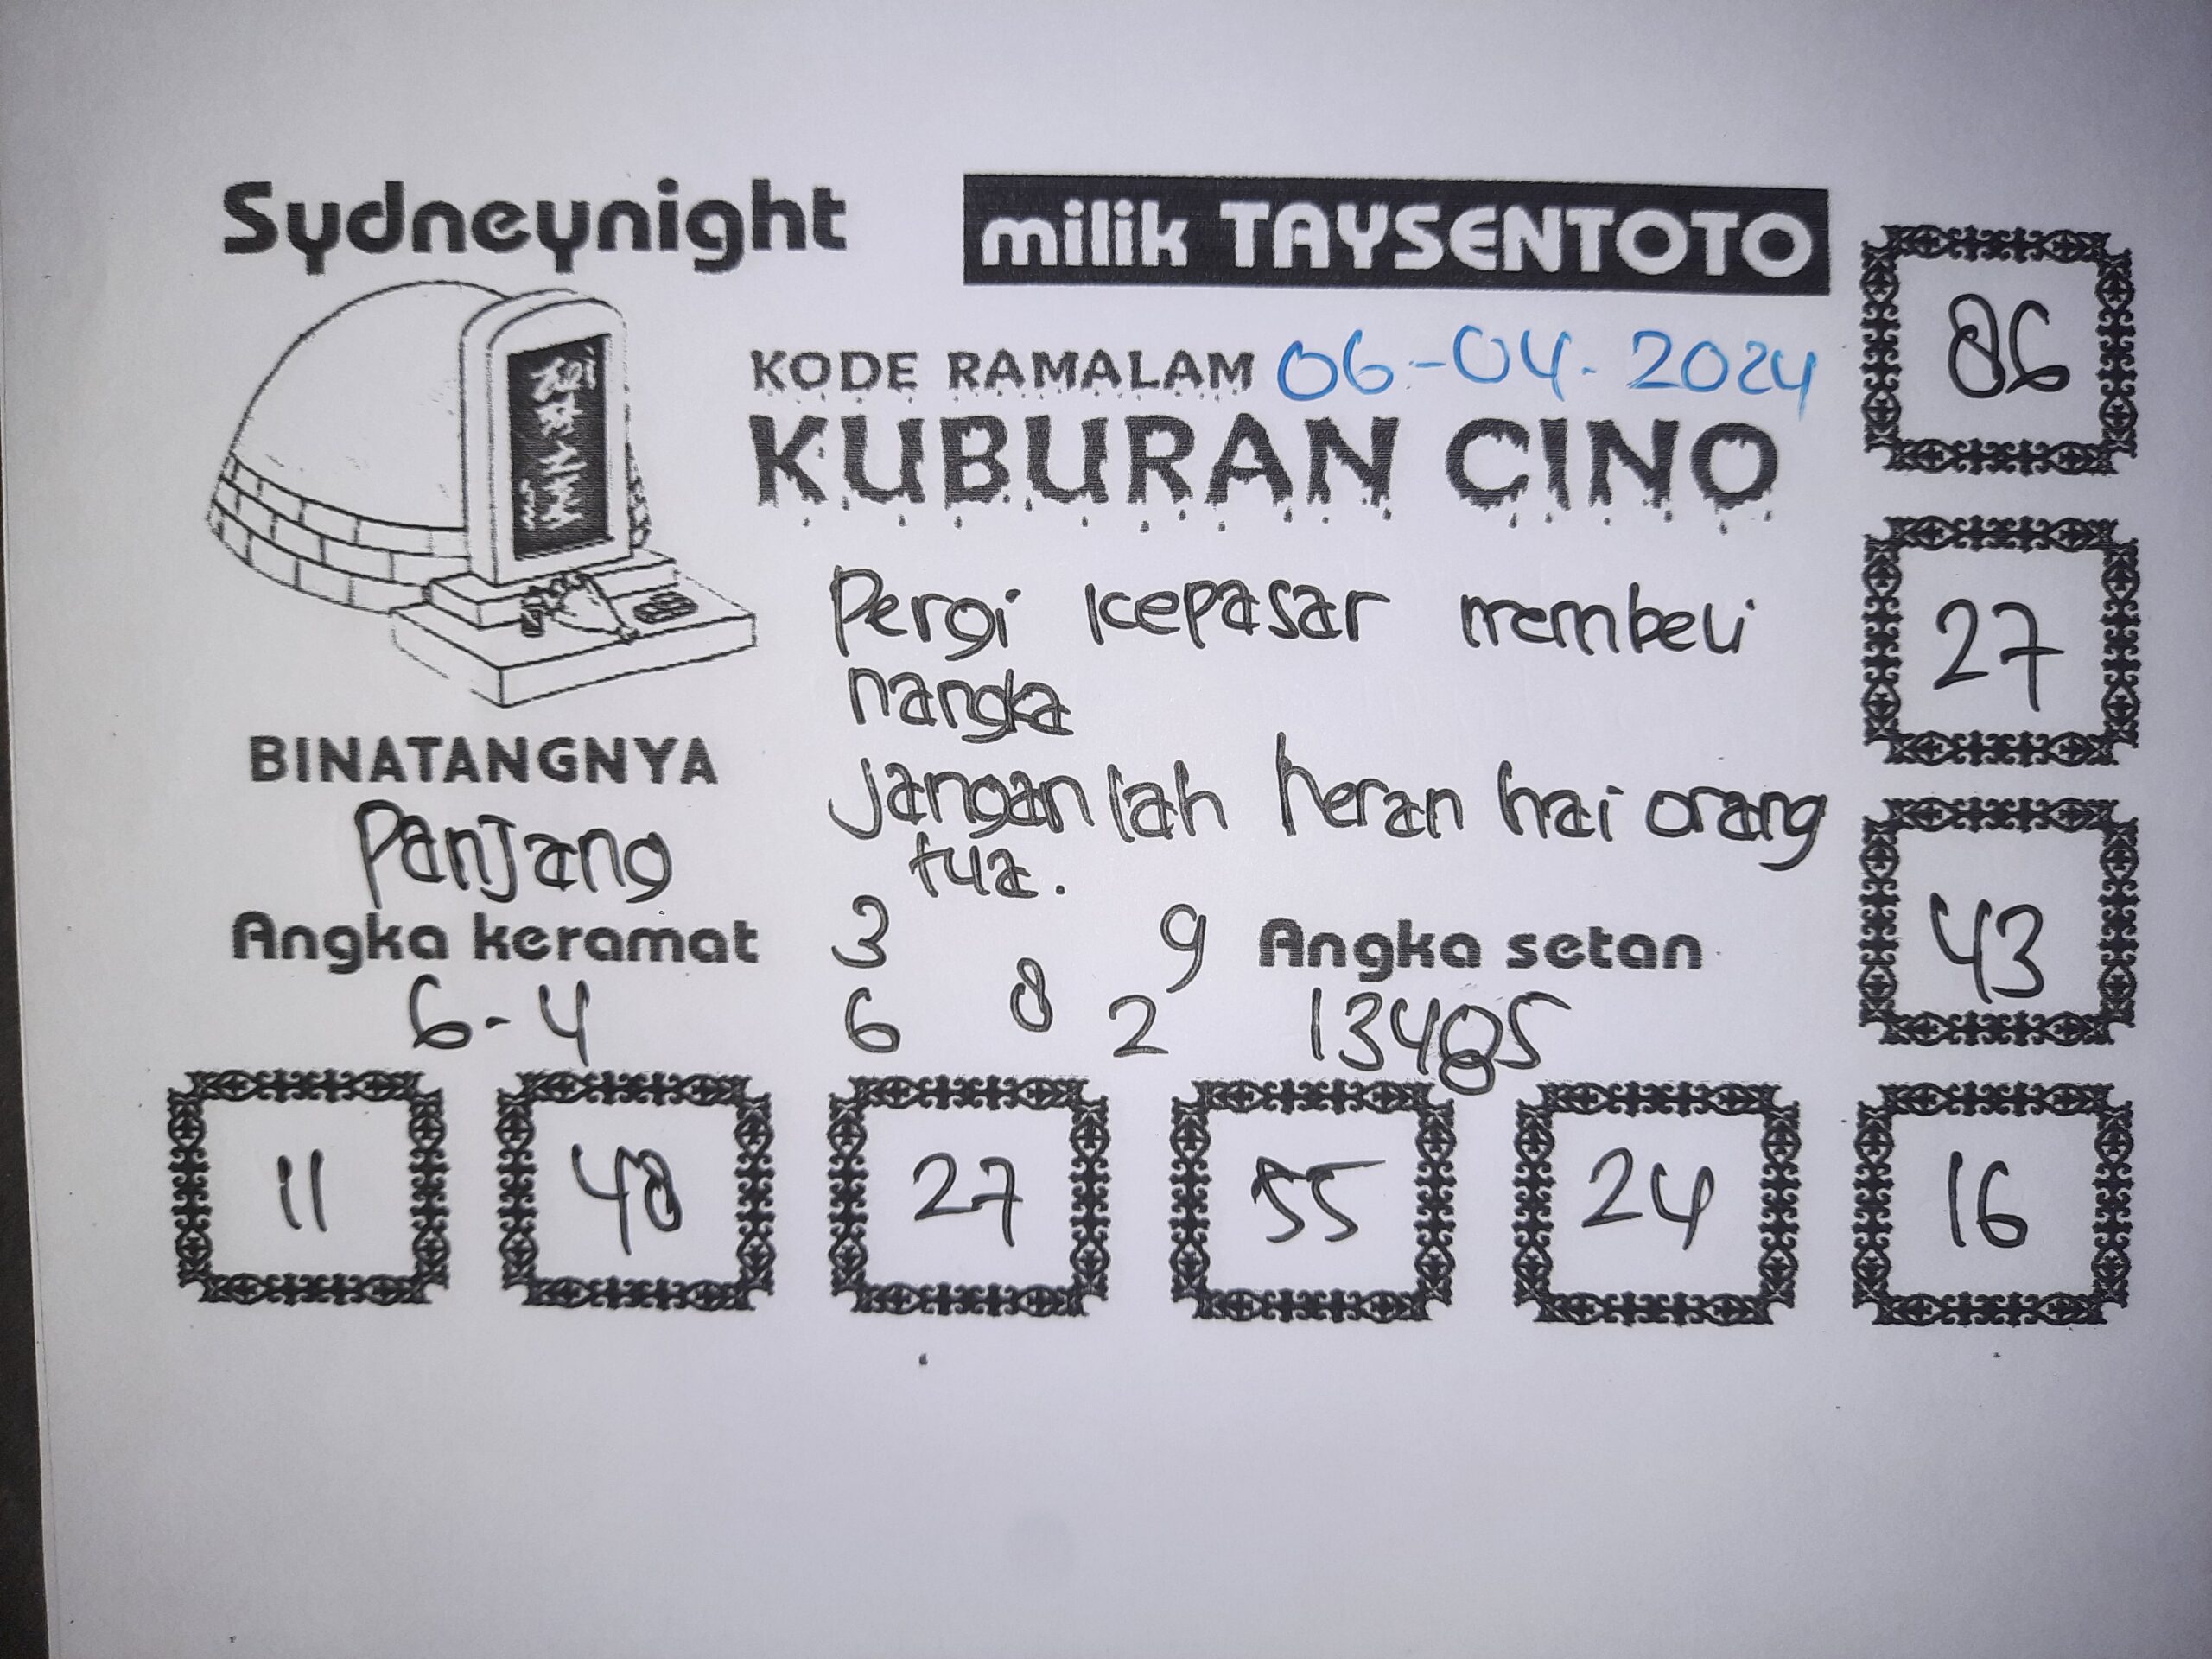 Sydneynight
milik TAYSENTOTO
KODE RAMALAM 06-04-2024
KUBURAN CINO
Pergi kepasar membeli
nangka
Janganlah heran hai orang
tua.
BINATANGNYA
Panjang
Angka keramat
6-4
3 9
6 8 2
Angka setan
13485
86
27
43
11 48 27 55 24 16